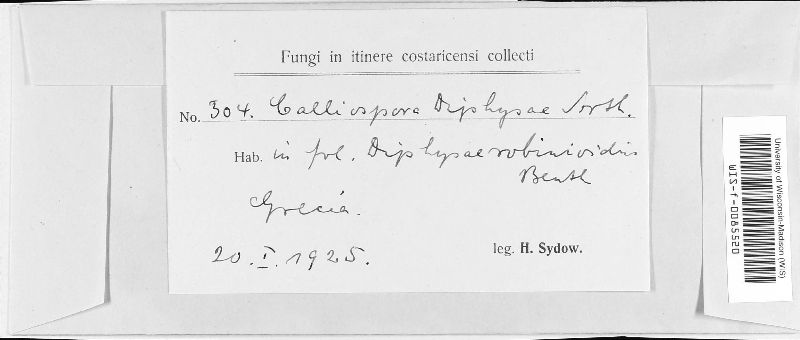 Fungi in itinere costaricensi collecti
No. 304. Calliospora Diphysae Arth.
Hab. in fol. Diphysae robinioidis
Benth
Grecia.
20. I. 1925.
leg. H. Sydow.
University of Wisconsin-Madison (WIS)
WIS-f-0085520